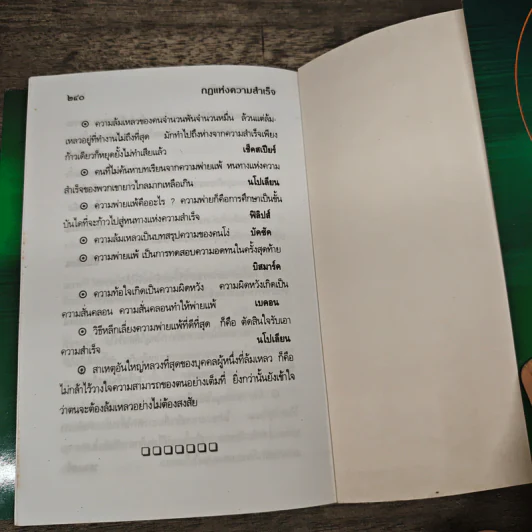 ๒๔๐ กฎแห่งความสำเร็จ
๏ ความล้มเหลวของคนจำนวนพันจำนวนหมื่น ล้วนแต่ล้ม-
เหลวอยู่ที่ทำงานไม่ถึงที่สุด มักทำไปถึงห่างจากความสำเร็จเพียง
ก้าวเดียวก็หยุดยั้งไม่ทำเสียแล้ว เช็คสเปียร์
๏ คนที่ไม่ค้นหาบทเรียนจากความพ่ายแพ้ หนทางแห่งความ
สำเร็จของพวกเขายาวไกลมากเหลือเกิน นโปเลียน
๏ ความพ่ายแพ้คืออะไร ? ความพ่ายก็คือการศึกษาเป็นขั้น
บันไดที่จะก้าวไปสู่หนทางแห่งความสำเร็จ ฟิลิปส์
๏ ความล้มเหลวเป็นบทสรุปความของคนโง่ บัคซัค
๏ ความพ่ายแพ้ เป็นการทดสอบความอดทนในครั้งสุดท้าย
บิสมาร์ค
๏ ความท้อใจเกิดเป็นความผิดหวัง ความผิดหวังเกิดเป็น
ความสั่นคลอน ความสั่นคลอนทำให้พ่ายแพ้ เบคอน
๏ วิธีหลีกเลี่ยงความพ่ายแพ้ที่ดีที่สุด ก็คือ ตัดสินใจรับเอา
ความสำเร็จ นโปเลียน
๏ สาเหตุอันใหญ่หลวงที่สุดของบุคคลผู้หนึ่งที่ล้มเหลว ก็คือ
ไม่กล้าไว้วางใจความสามารถของตนอย่างเต็มที่ ยิ่งกว่านั้นยังเข้าใจ
ว่าตนจะต้องล้มเหลวอย่างไม่ต้องสงสัย